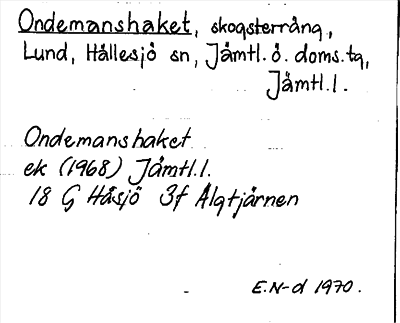 Ondemanshaket, skogsterräng,
Lund, Hällesjö sn, Jämtl. ö. doms.tg,
Jämtl. l.
Ondemanshaket
ek (1968) Jämtl. l.
18 G Håsjö 3f Älgtjärnen
E.N-d 1970.